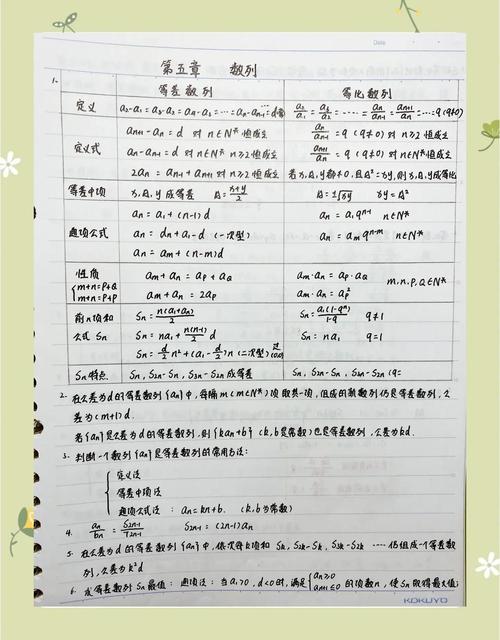 Date
第五章 数列
1. 等差数列 等比数列
定义 a₂-a₁=a₃-a₂=a₄-a₃=……=aₙ-aₙ₋₁=d常 a₂/a₁=a₃/a₂=……=aₙ/aₙ₋₁=aₙ₊₁/aₙ=…=q(q≠0)
定义式 aₙ₊₁-aₙ=d 对n∈N*恒成立 aₙ/aₙ₋₁=q(q≠0)对n≥2恒成立
aₙ-aₙ₋₁=d 对n∈N* n≥2恒成立 aₙ₊₁/aₙ=q(q≠0)对n∈N*恒成立
2aₙ=aₙ₋₁+aₙ₊₁ 对n∈N* n≥2恒成立 若x,A,y都≠0,且A²=xy,则x,A,y成等比
等差中项 x,A,y成等差 A=(x+y)/2 A=±√xy xy=A²
通项公式 aₙ=a₁+(n-1)d aₙ=a₁qⁿ⁻¹ n∈N*
aₙ=dn+a₁-d (一次型) aₙ=aₘqⁿ⁻ᵐ n∈N*
aₙ=aₘ+(n-m)d
性质 aₘ+aₙ=aₚ+a_Q aₘ·aₙ=aₚ·a_Q m,n,p,Q∈N*
{m+n=P+Q
m+n=P+P aₘ+aₙ=2aₚ aₘ·aₙ=aₚ²
前n项和 Sₙ=n(a₁+aₙ)/2 Sₙ=a₁(1-qⁿ)/(1-q) q≠1
公式Sₙ Sₙ=na₁+n(n-1)/2 d Sₙ=na₁ q=1
Sₙ=d/2 n²+(a₁-d/2)n (二次型)过(0,0)
Sₙ特点 Sₙ, S₂ₙ-Sₙ, S₃ₙ-S₂ₙ成等差 Sₙ, S₂ₙ-Sₙ, S₃ₙ-S₂ₙ (q=
2. 在公差为d的等差数列{aₙ}中,每隔m(m∈N*)项取其一项,组成的新数列仍是等差数列,公
差为(m+1)d.
若{aₙ}是公差为d的等差数列,则{kaₙ+b}(k,b是常数)也是等差数列,公差为kd.
3. 判断一个数列{aₙ}是等差数列的常用方法:
定义法
等差中项法
通项公式法:aₙ=kn+b. (k,b为常数)
4. aₙ/bₙ=S₂ₙ₋₁/T₂ₙ₋₁ S₂ₙ₋₁=(2n-1)aₙ
5. 在公差为d的等差数列{aₙ}中,依次每k项和Sₖ, S₂ₖ-Sₖ, S₃ₖ-S₂ₖ……仍组成一个等差数
列,公差为k²d
6. 求等差数列Sₙ最值:通项法:当a₁>0,d<0时,满足{aₙ≥0 aₙ₊₁≤0的项数n,使Sₙ取得最大值;
KOKUYO